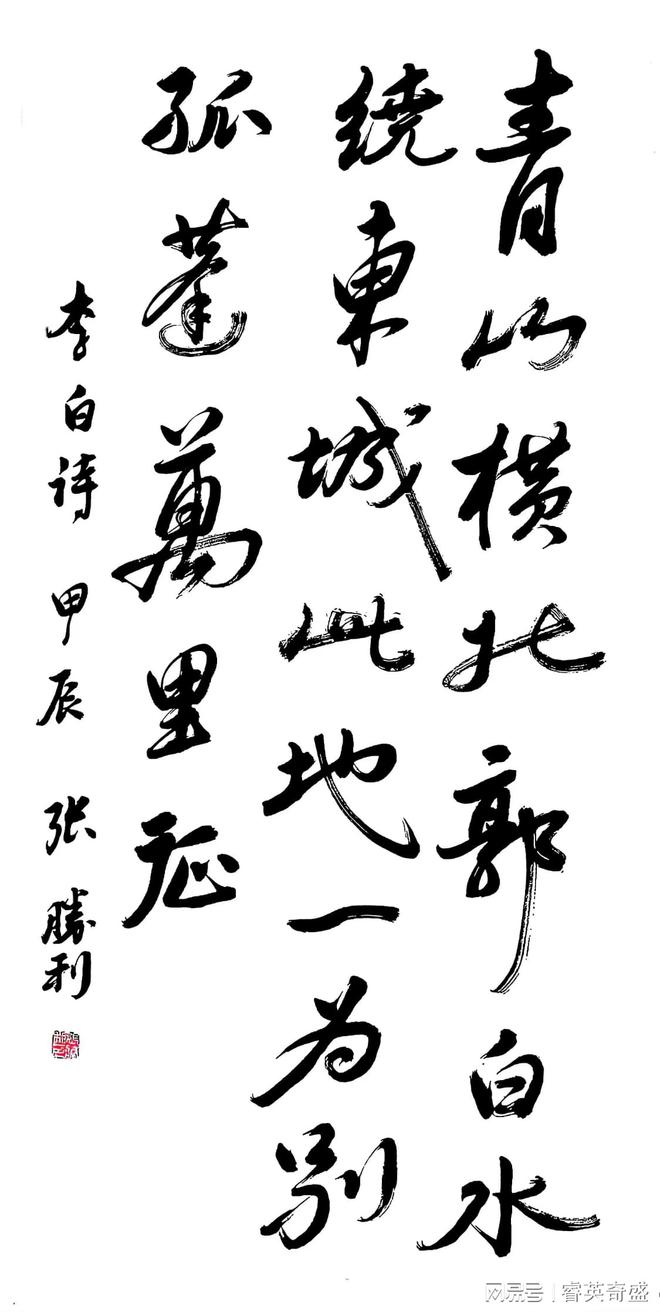 青山橫北郭白水
繞東城此地一为别
孤蓬萬里征
李白诗 甲辰 张勝利
网易号 | 睿英奇盛